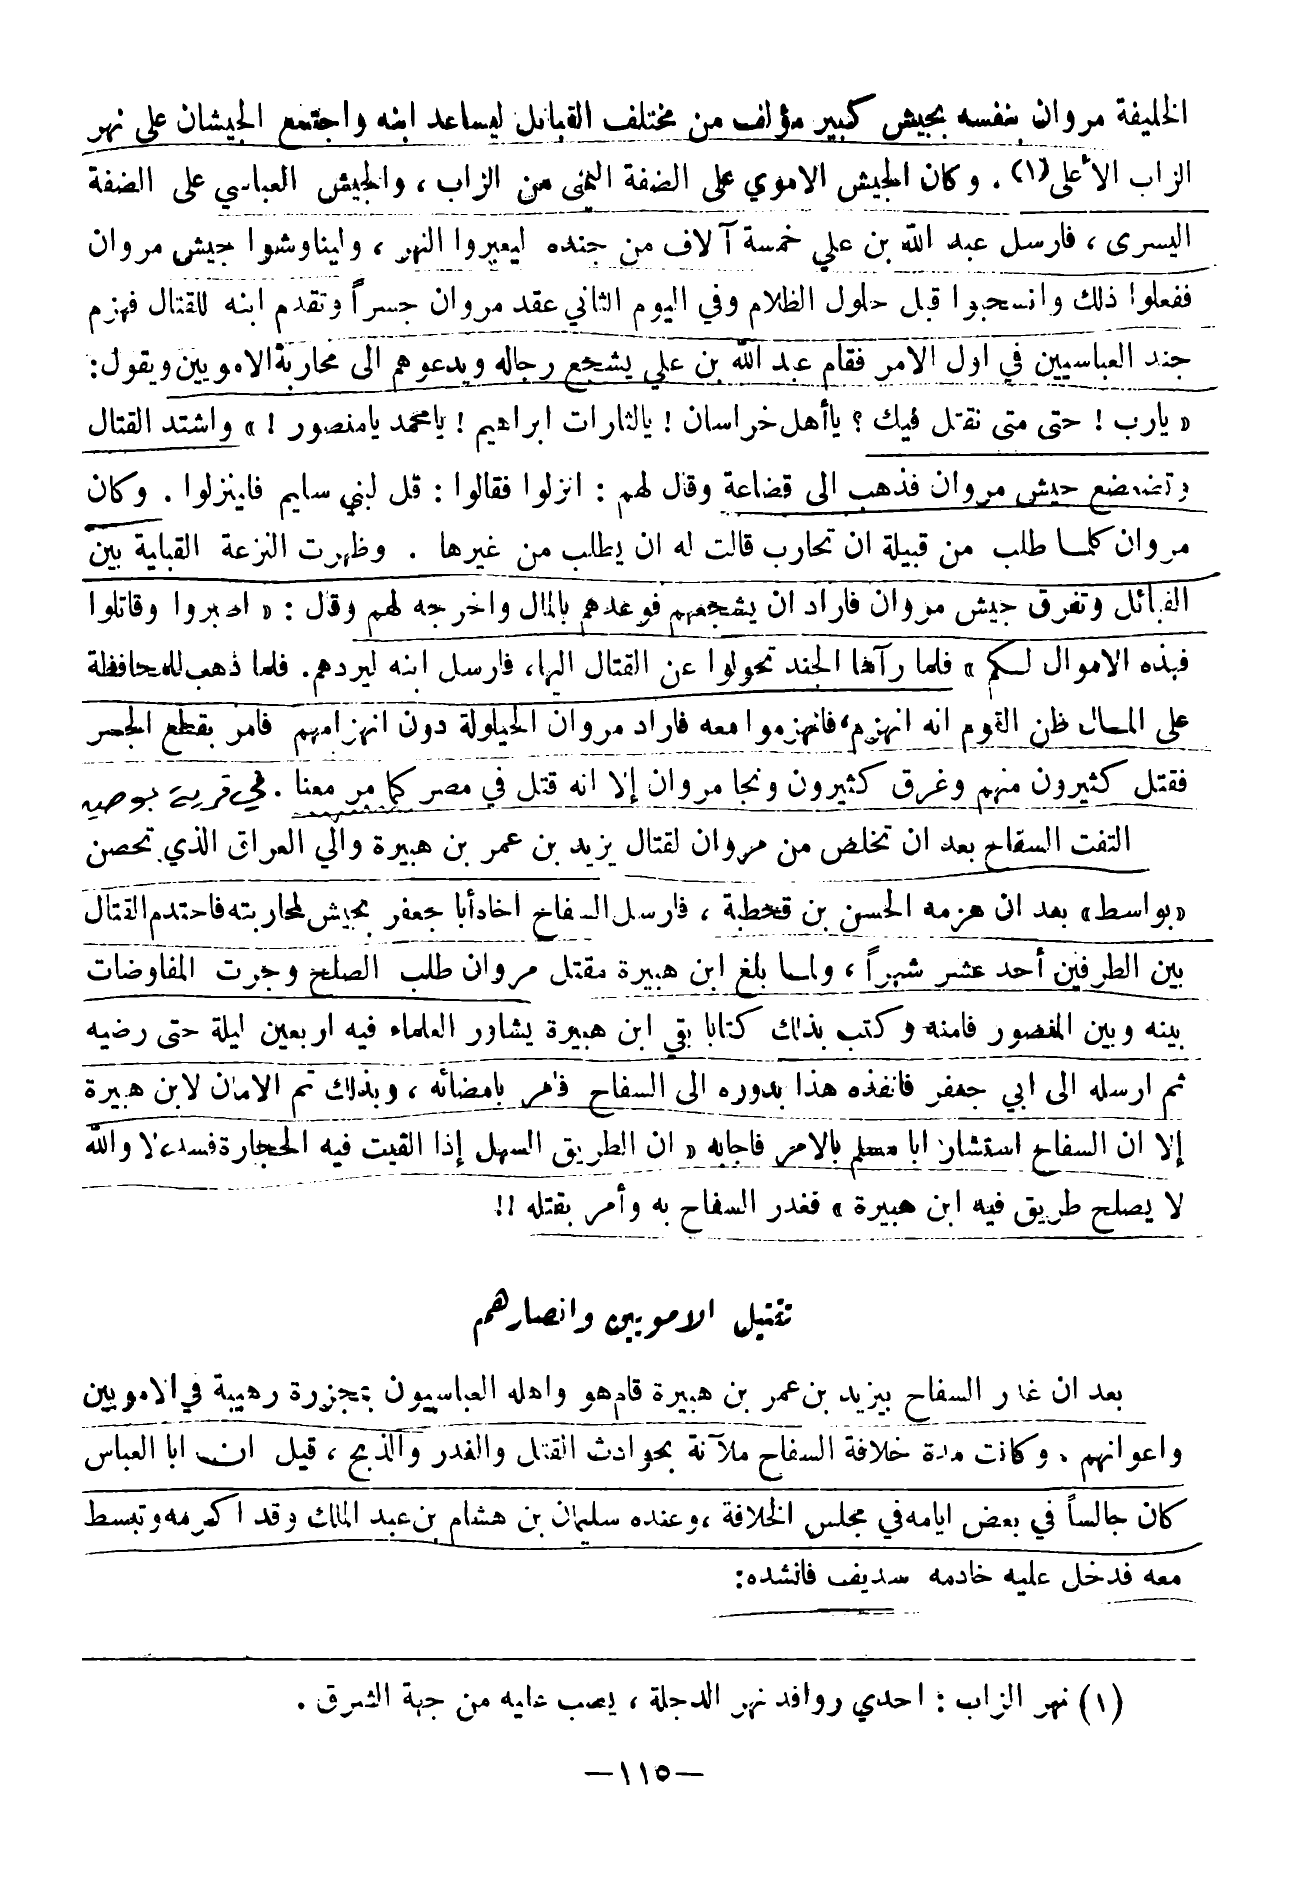 الخليفة مروان بنفسه بجيش كبير مؤلف من مختلف القبائل ليساعد ابنه واجتمع الجيشان على نهر
الزاب الأعلى(١) . وكان الجيش الاموي على الضفة اليمنى من الزاب ، والجيش العباسي على الضفة
اليسرى ، فارسل عبد الله بن علي خمسة آلاف من جنده ليعبروا النهر ، وليناوشوا جيش مروان
ففعلوا ذلك وانسحبوا قبل حلول الظلام وفي اليوم الثاني عقد مروان جسراً وتقدم ابنه للقتال فهزم
جند العباسيين في اول الامر فقام عبد الله بن علي يشجع رجاله ويدعوهم الى محاربة الامويين ويقول:
« يارب ! حتى متى نقتل فيك ؟ ياأهل خراسان ! يالثارات ابراهيم ! يامحمد يامنصور ! » واشتد القتال
وتضعضع جيش مروان فذهب الى قضاعة وقال لهم : انزلوا فقالوا : قل لبني سليم فلينزلوا . وكان
مروان كلما طلب من قبيلة ان تحارب قالت له ان يطلب من غيرها . وظهرت النزعة القبلية بين
القبائل وتفرق جيش مروان فاراد ان يشجعهم فوعدهم بالمال واخرجه لهم وقال : « اصبروا وقاتلوا
فهذه الاموال لكم » فلما رآها الجند تحولوا عن القتال اليها، فارسل ابنه ليردهم. فلما ذهب للمحافظة
على المال ظن القوم انه انهزم، فانهزموا معه فاراد مروان الحيلولة دون انهزامهم فامر بقطع الجسر
فقتل كثيرون منهم وغرق كثيرون ونجا مروان إلا انه قتل في مصر كما مر معنا . في قرية بوصير
التفت السفاح بعد ان تخلص من مروان لقتال يزيد بن عمر بن هبيرة والي العراق الذي تحصن
«بواسط» بعد ان هزمه الحسن بن قحطبة ، فارسل السفاح اخاه أبا جعفر بجيش لمحاربته فاحتدم القتال
بين الطرفين أحد عشر شهراً ، ولما بلغ ابن هبيرة مقتل مروان طلب الصلح وجرت المفاوضات
بينه وبين المنصور فامنه وكتب بذلك كتابا بقي ابن هبيرة يشاور العلماء فيه اربعين ليلة حتى رضيه
ثم ارسله الى ابي جعفر فانفذه هذا بدوره الى السفاح فأمر بامضائه ، وبذلك تم الامان لابن هبيرة
إلا ان السفاح استشار ابا مسلم بالامر فاجابه « ان الطريق السهل إذا القيت فيه الحجارة فسد، لا والله
لا يصلح طريق فيه ابن هبيرة » فغدر السفاح به وأمر بقتله !!
تقتيل الامويين وانصارهم
بعد ان غدر السفاح بيزيد بن عمر بن هبيرة قام هو واهله العباسيون بمجزرة رهيبة في الامويين
واعوانهم . وكانت مدة خلافة السفاح ملآنة بحوادث القتل والغدر والذبح ، قيل ان ابا العباس
كان جالساً في بعض ايامه في مجلس الخلافة ، وعنده سليمان بن هشام بن عبد الملك وقد اكرمه وتبسط
معه فدخل عليه خادمه سديف فانشده:
(١) نهر الزاب : احدى روافد نهر الدجلة ، يصب عليه من جهة الشرق .
—١١٥—